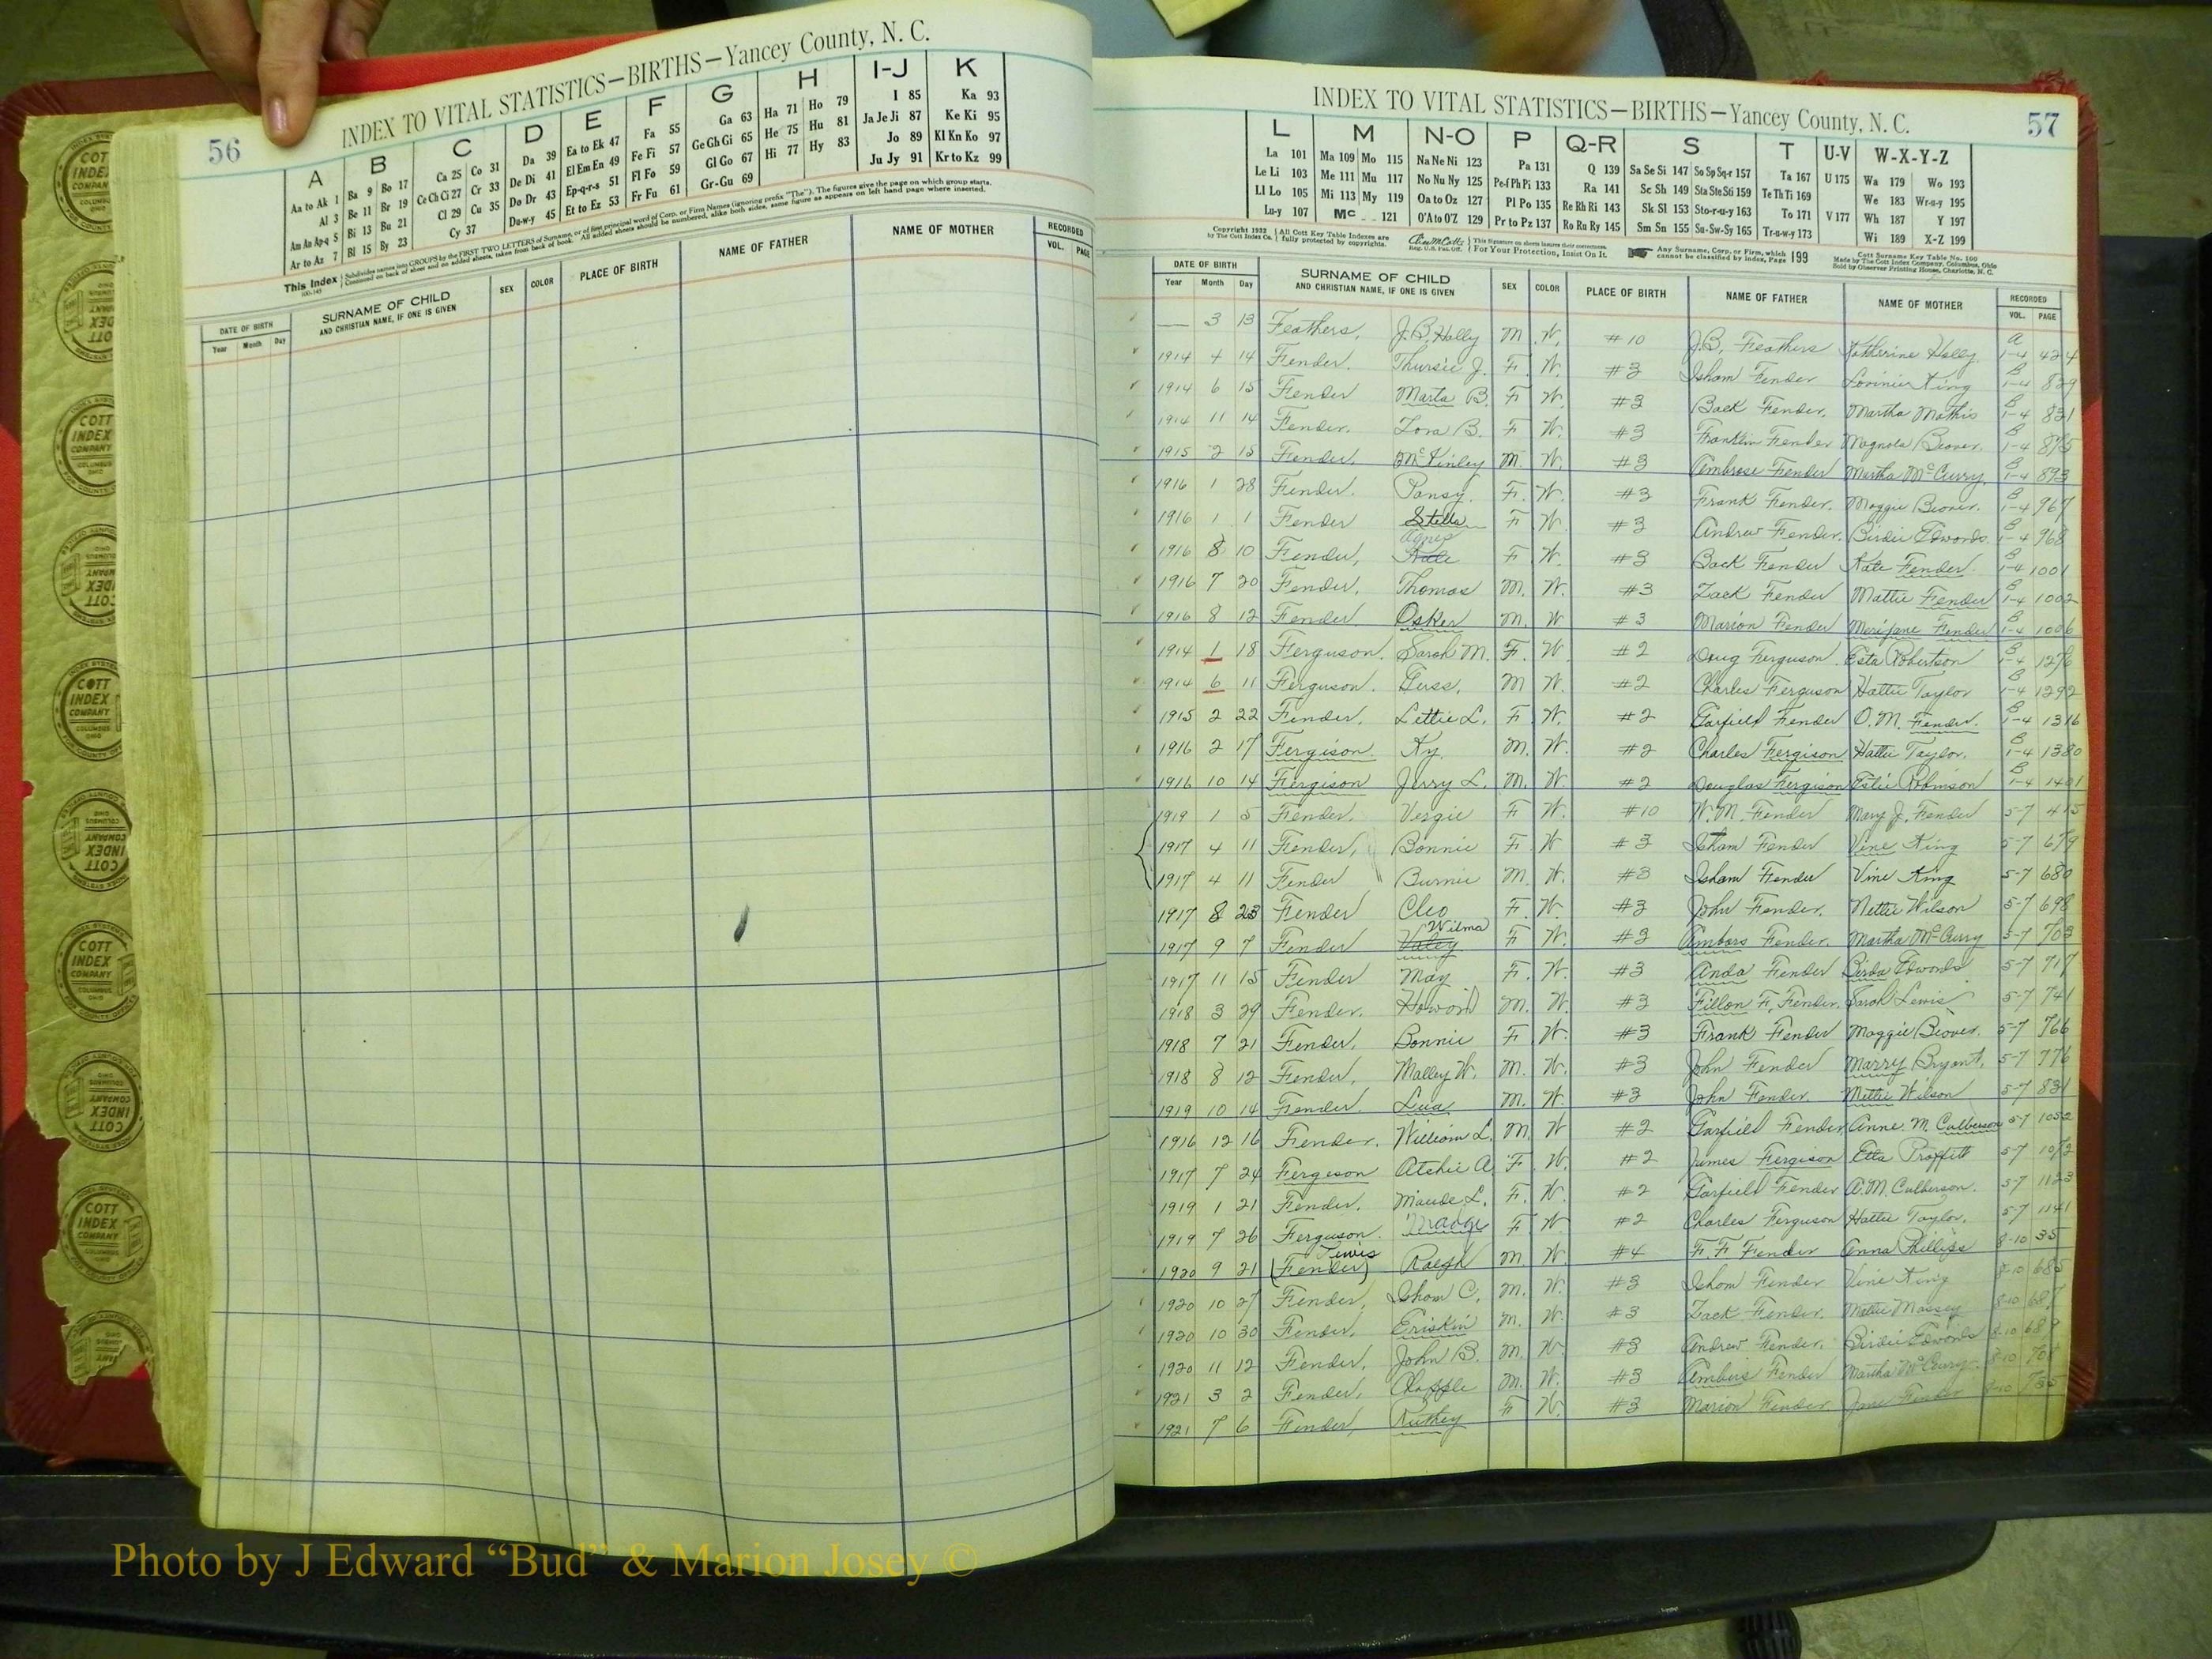 56
INDEX TO VITAL STATISTICS—BIRTHS—Yancey County, N. C.
A B C D E F G H I-J K
Aa to Ak 1 Ba 9 Bo 17 Ca 25 Co 31 Da 39 Ea to Ek 47 Fa 55 Ga 63 Ha 71 Ho 79 I 85 Ka 93
Al 3 Be 11 Br 19 Ce Ch Ci 27 Cr 33 De Di 41 El Em En 49 Fe Fi 57 Ge Gh Gi 65 He 75 Hu 81 Ja Je Ji 87 Ke Ki 95
Am An Ap-q 5 Bi 13 Bu 21 Cl 29 Cu 35 Do Dr 43 Ep-q-r-s 51 Fl Fo 59 Gl Go 67 Hi 77 Hy 83 Jo 89 Kl Kn Ko 97
Ar to Az 7 Bl 15 By 23 Cy 37 Du-w-y 45 Et to Ez 53 Fr Fu 61 Gr-Gu 69 Ju Jy 91 Kr to Kz 99
This Index Subdivides names into GROUPS by the FIRST TWO LETTERS of Surname, or of first principal word of Corp. or Firm Names (ignoring prefix "The"). The figures give the page on which group starts.
Continued on back of sheet and on added sheets, taken from back of book. All added sheets should be numbered, alike both sides, same figure as appears on left hand page where inserted.
DATE OF BIRTH SURNAME OF CHILD SEX COLOR PLACE OF BIRTH NAME OF FATHER NAME OF MOTHER RECORDED
Year Month Day AND CHRISTIAN NAME, IF ONE IS GIVEN VOL. PAGE
57
INDEX TO VITAL STATISTICS—BIRTHS—Yancey County, N. C.
L M N-O P Q-R S T U-V W-X-Y-Z
La 101 Ma 109 Mo 115 Na Ne Ni 123 Pa 131 Q 139 Sa Se Si 147 So Sp Sq-r 157 Ta 167 U 175 Wa 179 Wo 193
Le Li 103 Me 111 Mu 117 No Nu Ny 125 Pe-f Ph Pi 133 Ra 141 Sc Sh 149 Sta Ste Sti 159 Te Th Ti 169 We 183 Wr-u-y 195
Ll Lo 105 Mi 113 My 119 Oa to Oz 127 Pl Po 135 Re Rh Ri 143 Sk Sl 153 Sto-r-u-y 163 To 171 V 177 Wh 187 Y 197
Lu-y 107 Mc 121 O'A to O'Z 129 Pr to Pz 137 Ro Ru Ry 145 Sm Sn 155 Su-Sw-Sy 165 Tr-u-w-y 173 Wi 189 X-Z 199
Copyright 1932 by The Cott Index Co. All Cott Key Table Indexes are fully protected by copyrights. This Signature on sheets insures their correctness. For Your Protection, Insist On It. Any Surname, Corp. or Firm, which cannot be classified by index, Page 199
Cott Surname Key Table No. 100 Made by The Cott Index Company, Columbus, Ohio Sold by Observer Printing House, Charlotte, N. C.
DATE OF BIRTH SURNAME OF CHILD SEX COLOR PLACE OF BIRTH NAME OF FATHER NAME OF MOTHER RECORDED
Year Month Day AND CHRISTIAN NAME, IF ONE IS GIVEN VOL. PAGE
— 3 13 Feathers, J.B. Holly M W. #10 J.B. Feathers Katherine Holly A 1-4 424
1914 4 14 Fender. Thursie J. F. W. #3 Isham Fender Lovinier King B 1-4 829
1914 6 15 Fender Marta B. F W. #3 Back Fender. Martha Mathis B 1-4 831
1914 11 14 Fender. Zora B. F W. #3 Franklin Fender Magnola Beaver. B 1-4 875
1915 2 15 Fender. McKinley M. W. #3 Ambrose Fender Martha McCurry. B 1-4 893
1916 1 28 Fender. Pansy. F. W. #3 Frank Fender. Maggie Beaver. B 1-4 967
1916 1 1 Fender Stella F W. #3 Andrew Fender. Birdie Edwards. B 1-4 968
1916 8 10 Fender, Agnes Kate F W. #3 Back Fender Kate Fender. B 1-4 1001
1916 7 20 Fender. Thomas M. W. #3 Zack Fender Mattie Fender B 1-4 1002
1916 8 12 Fender. Osker M. W #3 Marion Fender Merijane Fender B 1-4 1006
1914 1 18 Ferguson. Sarah M. F. W. #2 Doug Ferguson. Esta Robertson B 1-4 1276
1914 6 11 Ferguson. M W. #2 Charles Ferguson Hattie Taylor B 1-4 1292
1915 2 22 Fender. Lettie L. F W. #2 Garfield Fender O.M. Fender. B 1-4 1316
1916 2 17 Fergison Ky. M. W. #2 Charles Fergison. Hattie Taylor. B 1-4 1380
1916 10 14 Fergison Jerry L. M. W. #2 Douglas Fergison Estie Robinson B 1-4 1401
1919 1 5 Fender. Vergie F W. #10 W.M. Fender Mary J. Fender 5-7 415
1917 4 11 Fender, Bonnie F W #3 Isham Fender Vine King 5-7 679
1917 4 11 Fender Burnie M. W. #3 Isham Fender Vine King 5-7 680
1917 8 23 Fender Cleo F. W. #3 John Fender. Nettie Wilson 5-7 698
1917 9 7 Fender Wilma F W. #3 Ambors Fender. Martha McCurry 5-7 703
1917 11 15 Fender May F. W. #3 Anda Fender Birda Edwards 5-7 717
1918 3 29 Fender. Howard M. W. #3 Fillon F. Fender. Sarah Lewis 5-7 741
1918 7 21 Fender. Bonnie F W. #3 Frank Fender Maggie Beaver. 5-7 766
1918 8 12 Fender. Malley W. M. W. #3 John Fender Marry Bryant. 5-7 776
1919 10 14 Fender. M. W. #3 John Fender. Mettie Wilson 5-7 831
1916 12 16 Fender. William L. M. W #2 Garfield Fender Anne. M. Culberson 5-7 1052
1917 7 24 Fergeson Atshie A F. W. #2 James Fergeson Etta Proffitt 5-7 1072
1919 1 21 Fender. Maude L. F. W. #2 Garfield Fender A.M. Culberson. 5-7 1123
1919 7 26 Ferguson. Madge F W #2 Charles Ferguson Hattie Taylor. 5-7 1141
1920 9 21 (Fender) Lewis Ralph M W. #4 F.F. Fender Anna Phillips 8-10 35
1920 10 27 Fender, Isham C. M. W. #3 Isham Fender Vine King 8-10 685
1920 10 30 Fender. Eriskin M. W. #3 Zack Fender. Mattie Massey 8-10 687
1920 11 12 Fender. John B. M. W. #3 Andrew Fender. Birdie Edwards 8-10 689
1921 3 2 Fender. M. W. #3 Ambers Fender Martha McCurry. 8-10
1921 7 6 Fender, Ruthey F W. #3 Marion Fender. Jane Fender 8-10 735
COTT INDEX COMPANY COLUMBUS OHIO
Photo by J Edward “Bud” & Marion Josey ©